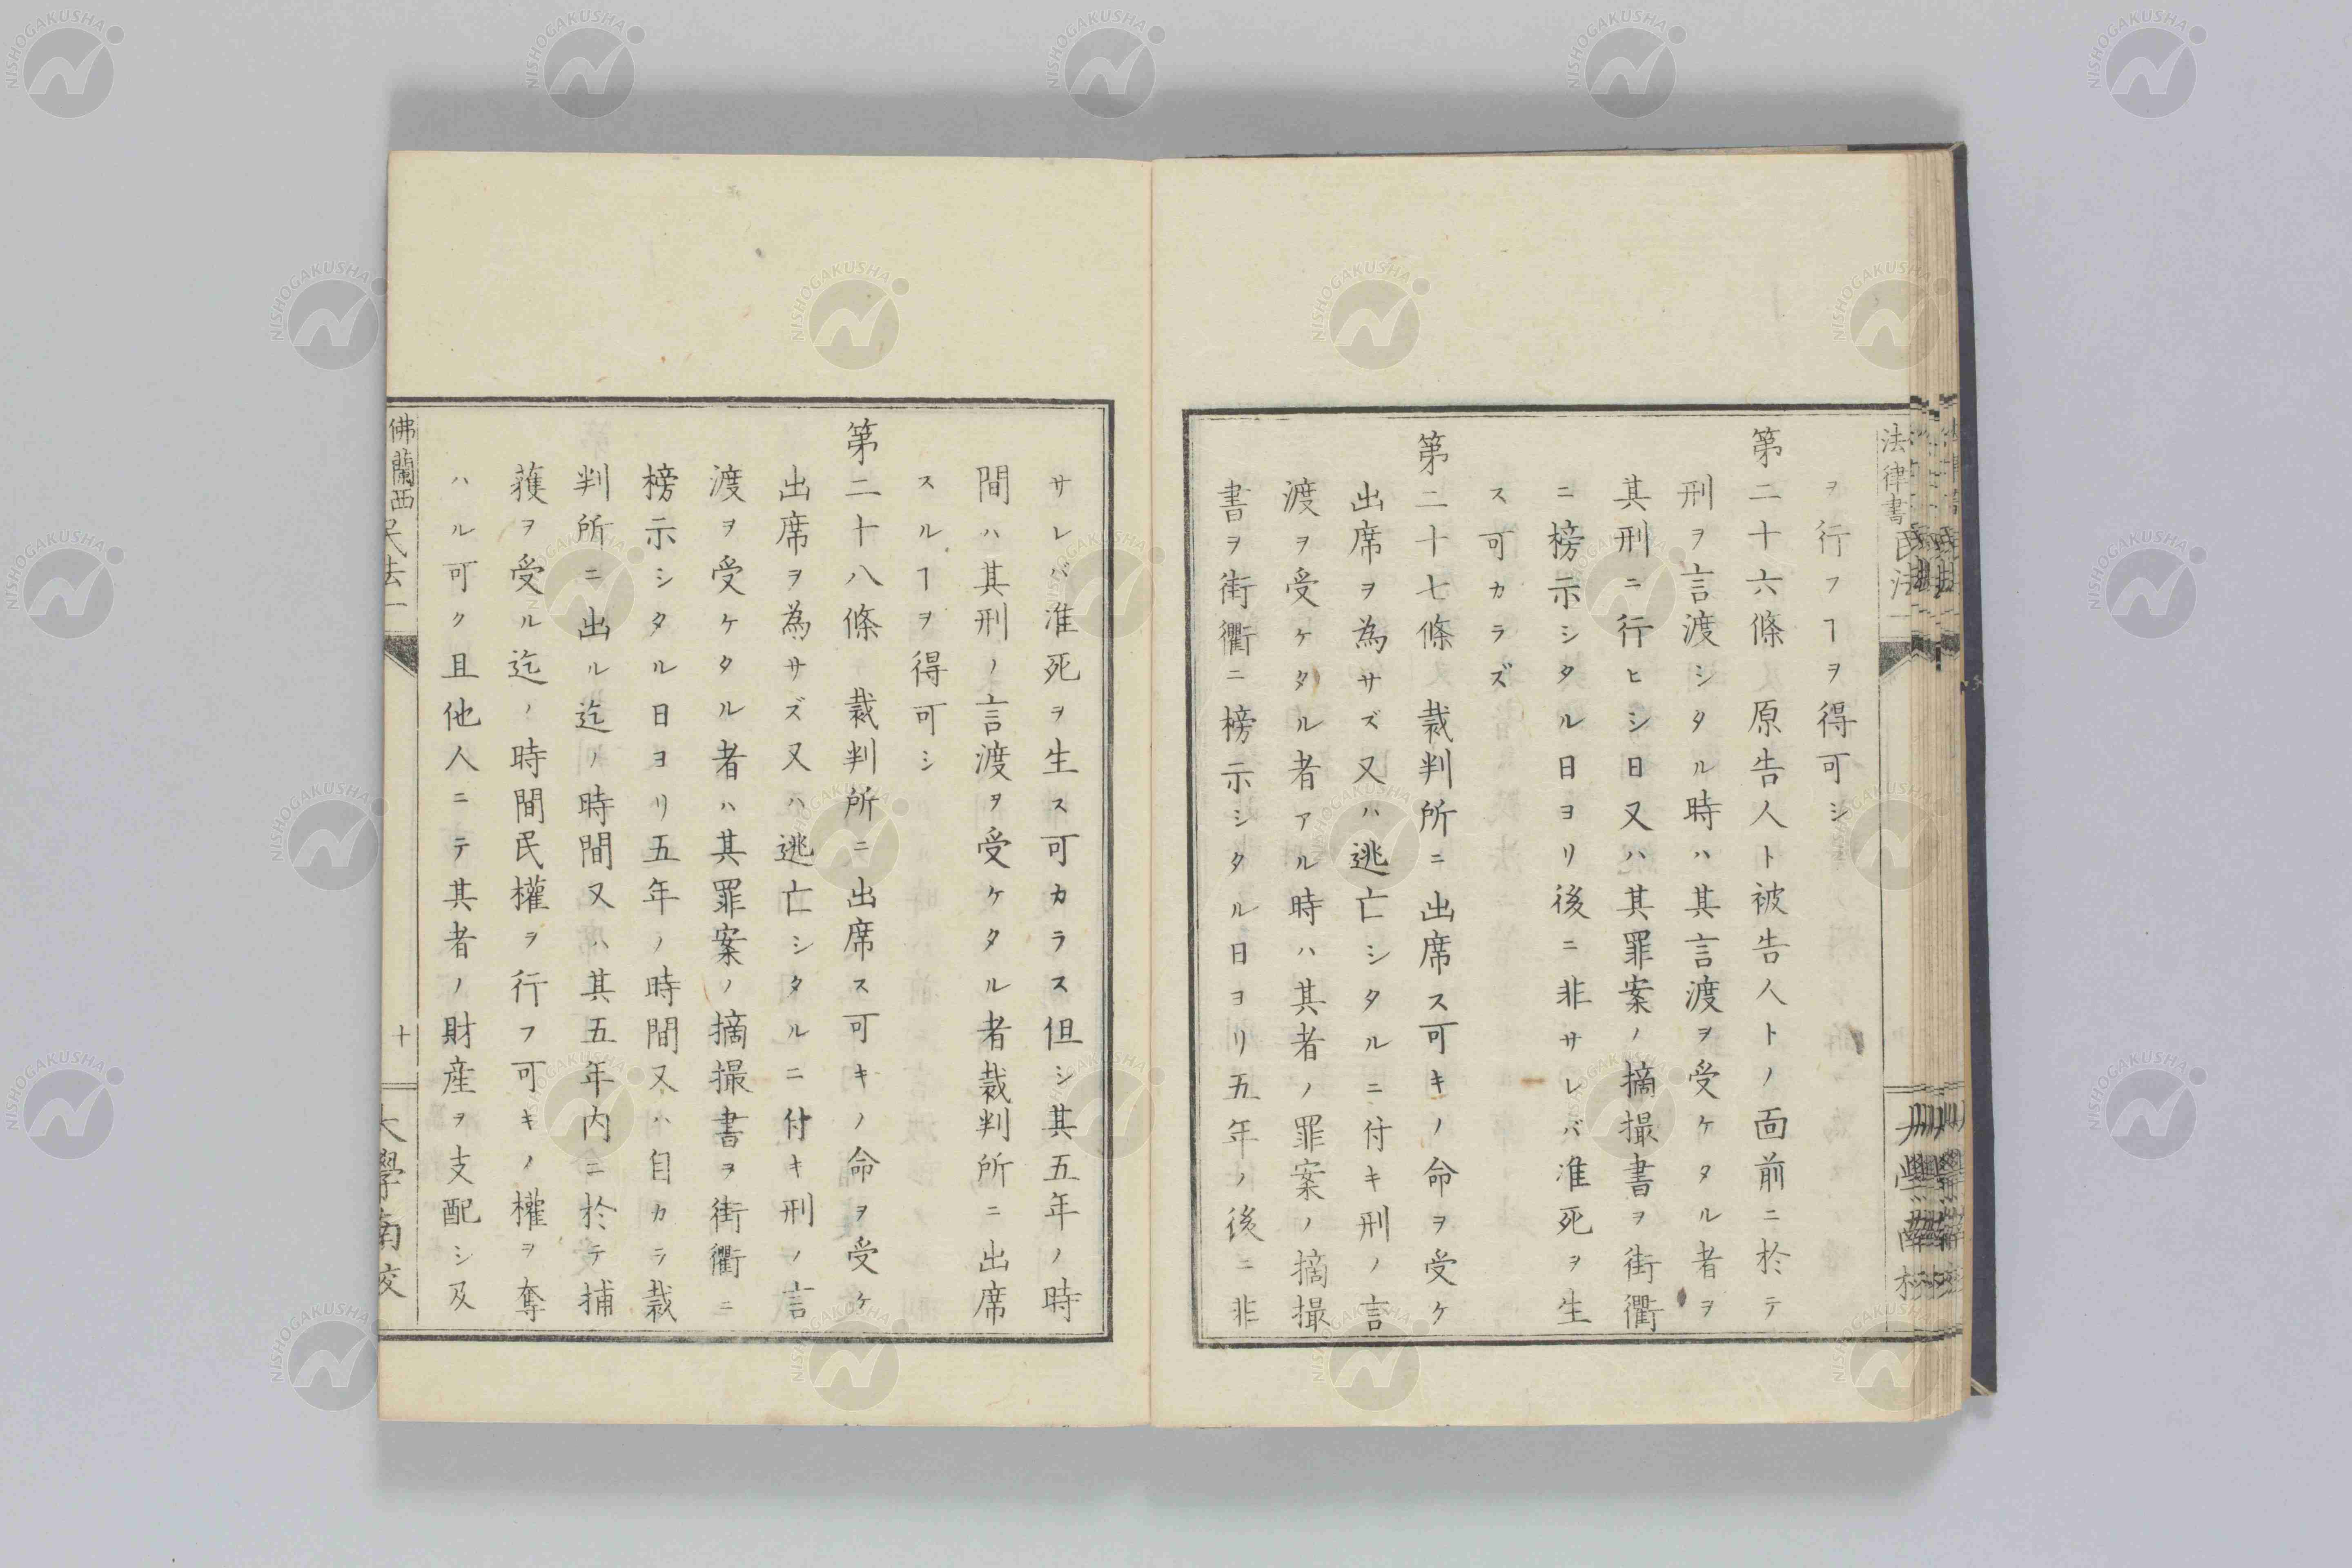 法律書 民法
ヲ行フヿヲ得可シ
第二十六條 原告人ト被告人トノ面前ニ於テ
刑ヲ言渡シタル時ハ其言渡ヲ受ケタル者ヲ
其刑ニ行ヒシ日又ハ其罪案ノ摘撮書ヲ街衢
ニ榜示シタル日ヨリ後ニ非サレバ准死ヲ生
ス可カラズ
第二十七條 裁判所ニ出席ス可キノ命ヲ受ケ
出席ヲ為サズ又ハ逃亡シタルニ付キ刑ノ言
渡ヲ受ケタル者アル時ハ其者ノ罪案ノ摘撮
書ヲ街衢ニ榜示シタル日ヨリ五年ノ後ニ非
サレバ准死ヲ生ス可カラス但シ其五年ノ時
間ハ其刑ノ言渡ヲ受ケタル者裁判所ニ出席
スルヿヲ得可シ
第二十八條 裁判所ニ出席ス可キノ命ヲ受ケ
出席ヲ為サズ又ハ逃亡シタルニ付キ刑ノ言
渡ヲ受ケタル者ハ其罪案ノ摘撮書ヲ街衢ニ
榜示シタル日ヨリ五年ノ時間又ハ自カラ裁
判所ニ出ル迄ノ時間又ハ其五年内ニ於テ捕
獲ヲ受ル迄ノ時間民權ヲ行フ可キノ權ヲ奪
ハル可ク且他人ニテ其者ノ財産ヲ支配シ及
佛蘭西民法一 十 大學南校
NISHOGAKUSHA